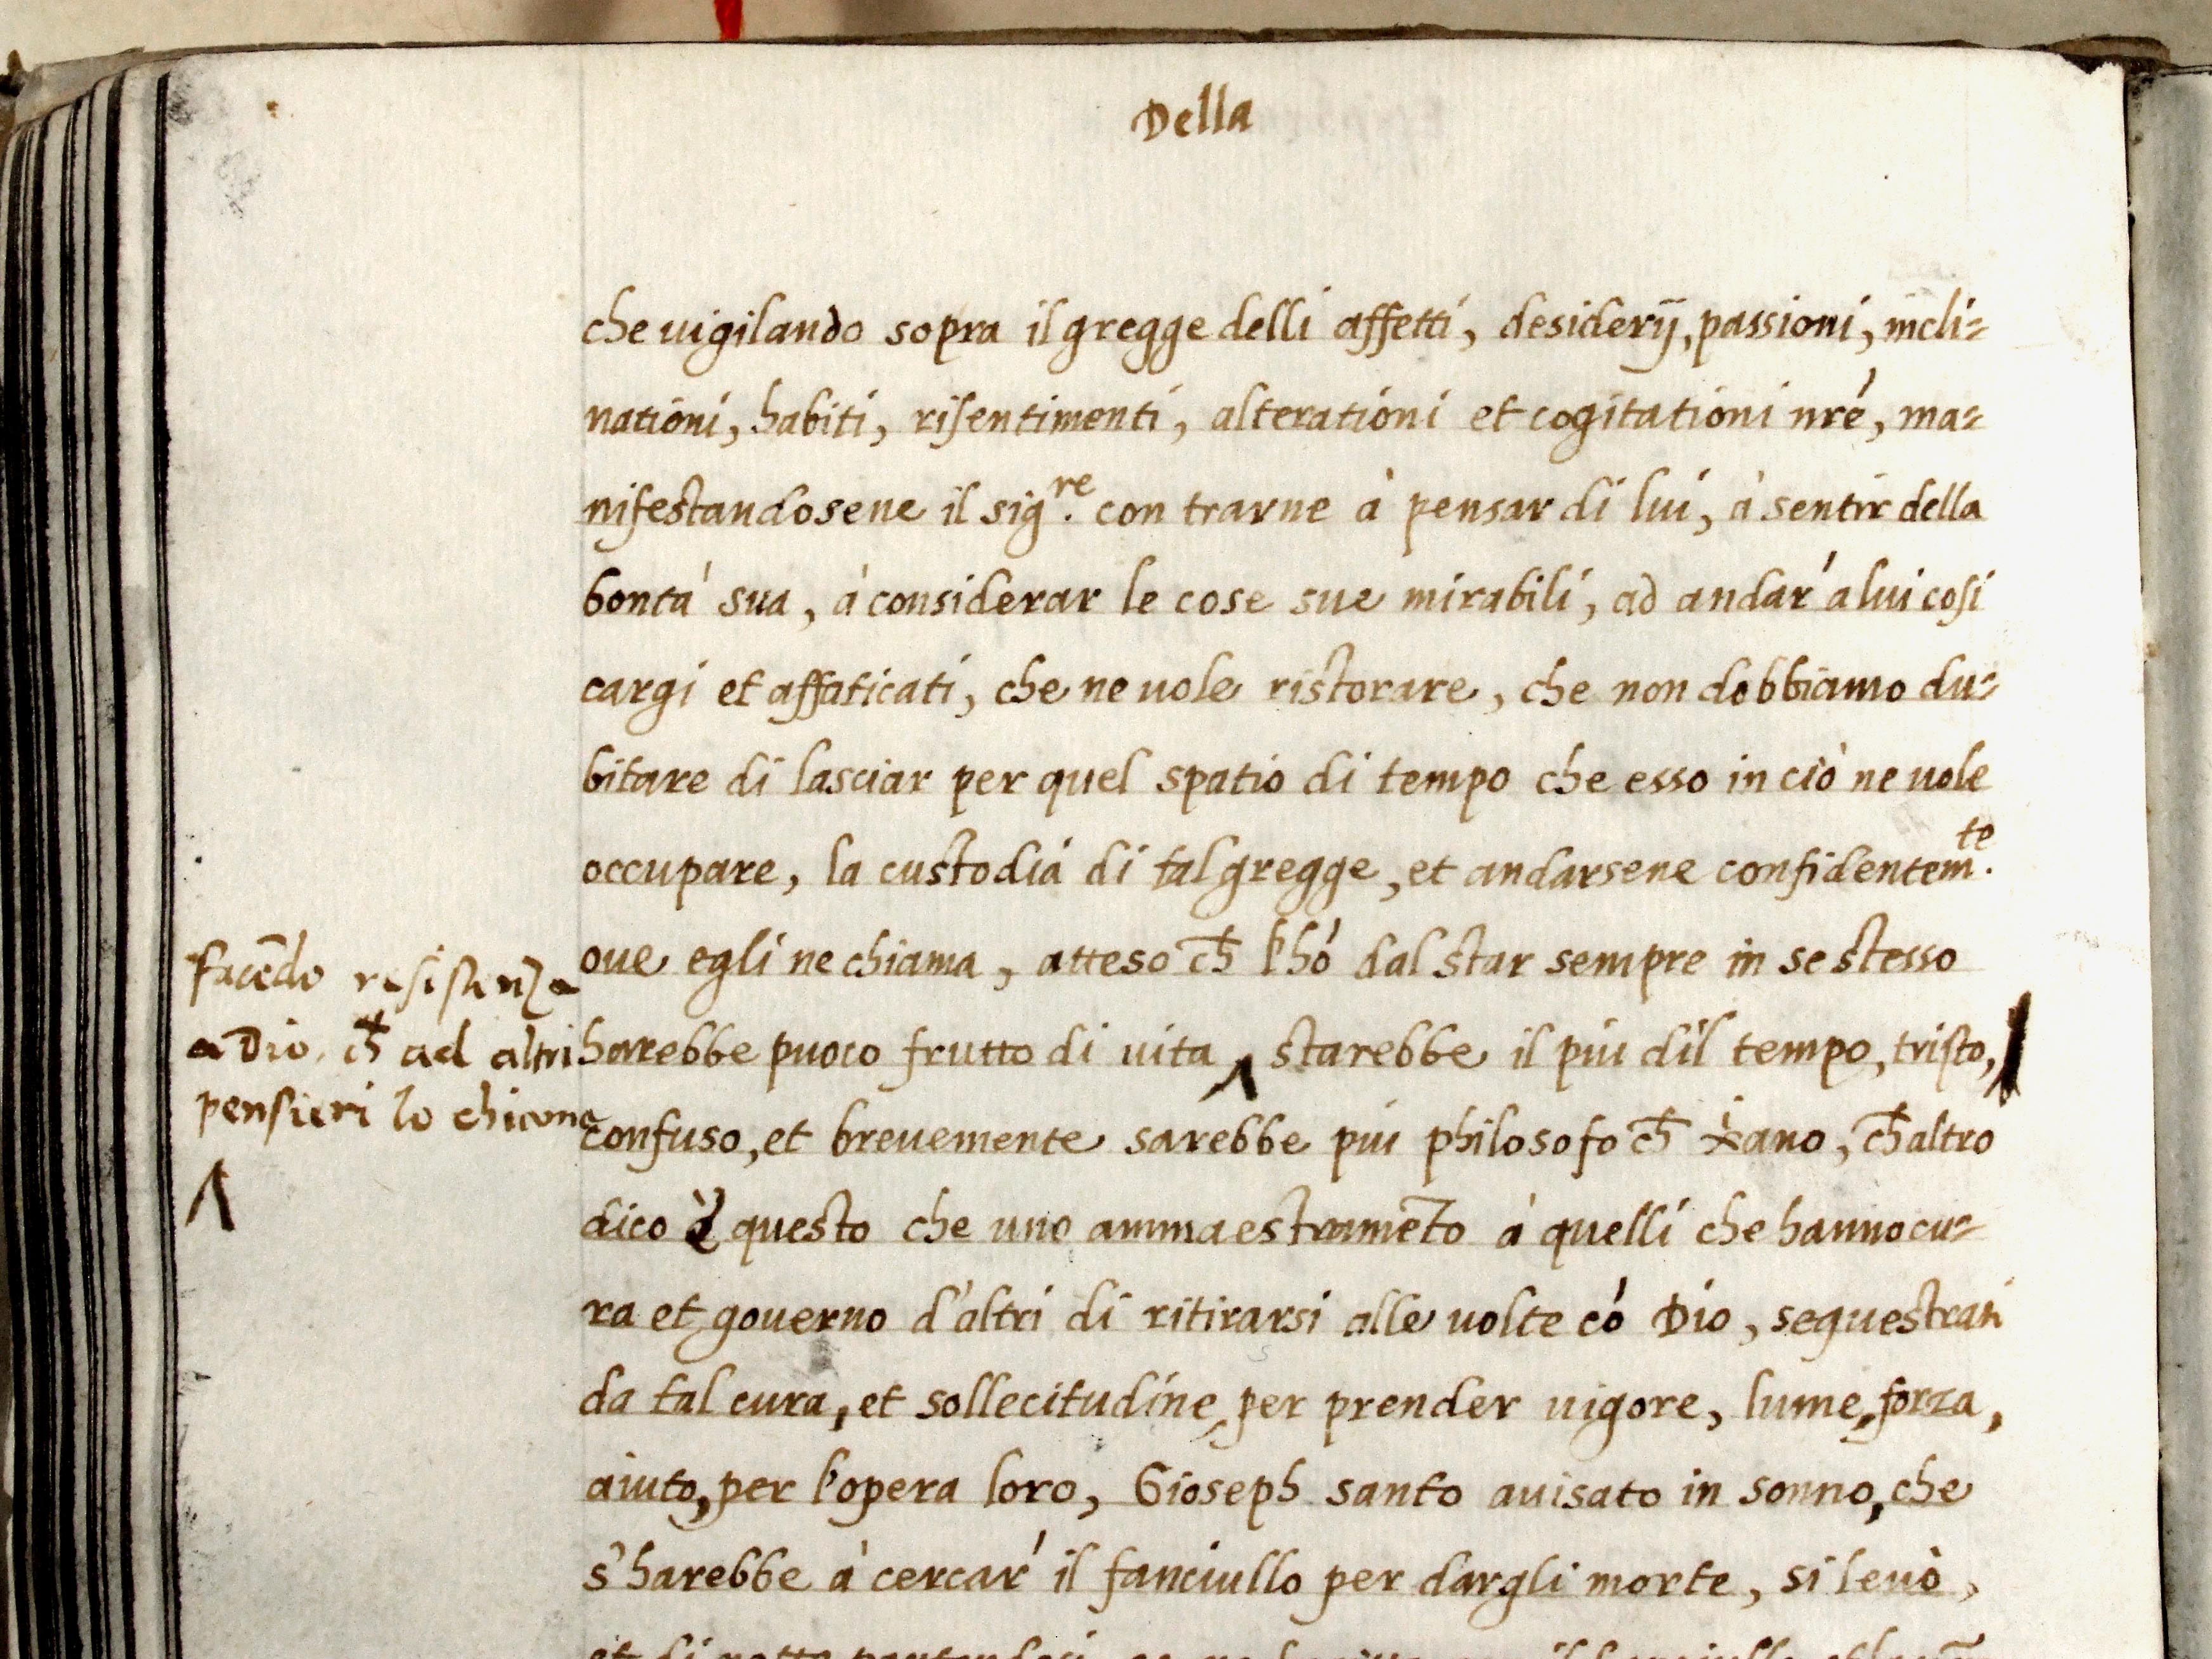 Della
che uigilando sopra il gregge delli affetti, desiderij, passioni, incli=
nationi, habiti, risentimenti, alterationi et cogitationi nr̃e, ma=
nifestandosene il sig.re con trarne à pensar di lui, à sentir della
bontà sua, à considerar le cose sue mirabili, ad andar' a lui cosi
cargi et affaticati, che ne uole ristorare, che non dobbiamo du=
bitare di lasciar per quel spatio di tempo che esso in ciò ne uole
occupare, la custodia di tal gregge, et andarsene confidentem.te
oue egli ne chiama, atteso ch̃ l'hō dal star sempre in se stesso
facẽdo resistenza
a Dio, ch̃ ad altri
pensieri lo chiama
harebbe puoco frutto di uita ^ starebbe il piu dil tempo, tristo,
confuso, et breuemente sarebbe piu philosofo ch̃ x̃ano, ch̃ altro
dico è questo che uno ammaestramẽto à quelli che hanno cu=
ra et gouerno d'altri di ritirarsi alle uolte cō Dio, sequestrati
da tal cura, et sollecitudine, per prender uigore, lume, forza,
aiuto, per l'opera loro, Gioseph santo auisato in sonno, che
s'harebbe à cercar' il fanciullo per dargli morte, si leuò,